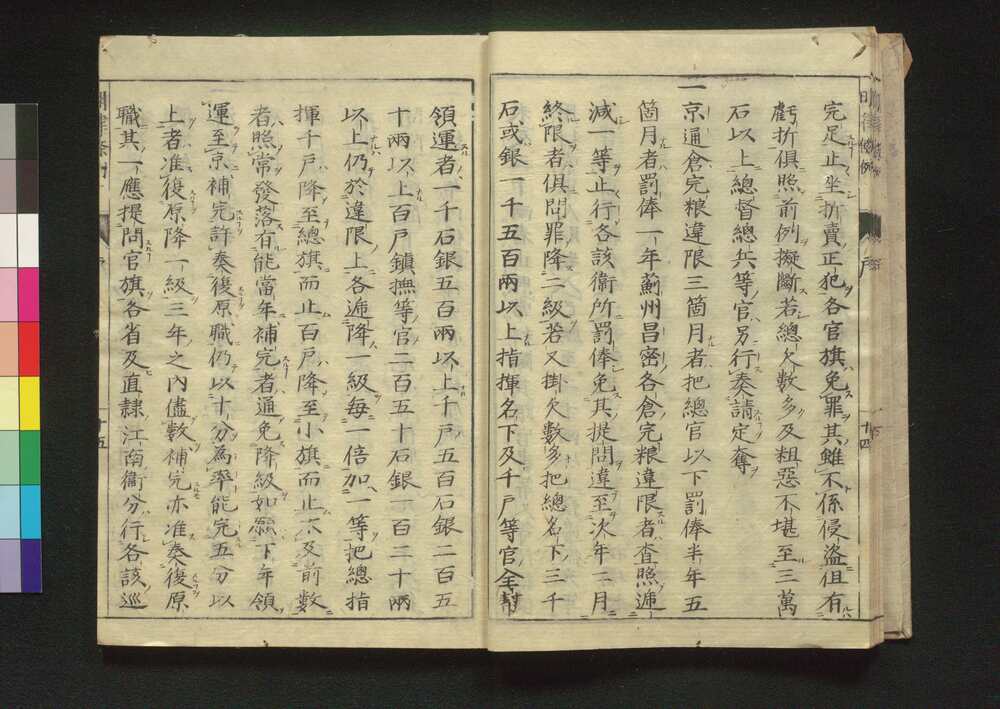 完足止坐折賣正犯各官旗免罪其雖不係侵盗但有
虧折俱照前例擬斷若總欠數多及粗惡不堪至三萬
石以上總督總兵等官另行奏請定奪
一京通倉完粮違限三箇月者把總官以下罰俸半年五
箇月者罰俸一年薊州昌密各倉完粮違限者查照遞
減一等止行各該衞所罰俸免其提問違至次年二月
終限者俱問罪降二級若又掛欠數多把總名下三千
石或銀一千五百兩以上指揮名下及千戶等官全幫
領運者一千石銀五百兩以上千戶五百石銀二百五
十兩以上百戶鎮撫等官二百五十石銀一百二十兩
以上仍於違限上各遞降一級每一倍加一等把總指
揮千戶降至總旗而止百戶降至小旗而止不及前數
者照常發落有能當年補完者通免降級如願下年領
運至京補完許奏復原職仍以十分為率能完五分以
上者准復原降一級三年之內儘數補完亦准奏復原
職其一應提問官旗各省及直隷江南衞分行各該巡
戶
十四
十五